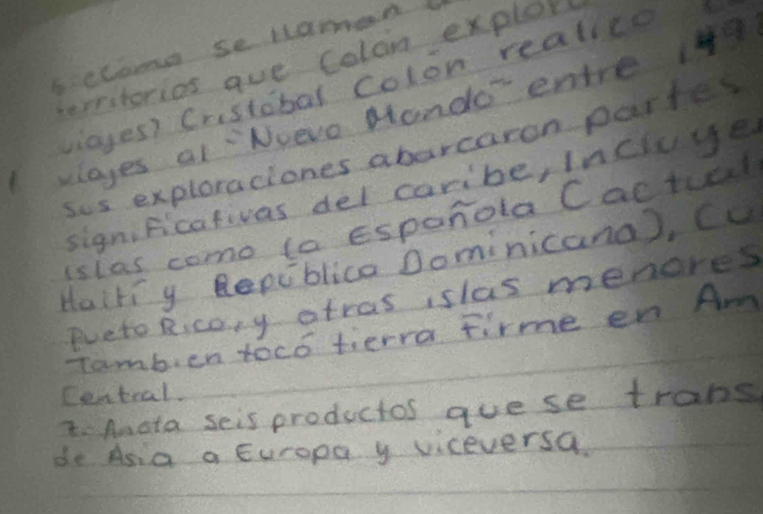 se llaman
territorios que Colón explor
viajes? Cristobal Colón realico
viajes al "Nuevo Mondo" entre 149
sus exploraciones abarcaron partes
significativas del caribe, incluye
islas como la Española (actual
Haití y República Dominicana), Cu
Pueto Rico, y otras islas menores
Tambien tocó tierra firme en Am
Central.
Anota seis productos que se trans
de Asia a Europa y viceversa.